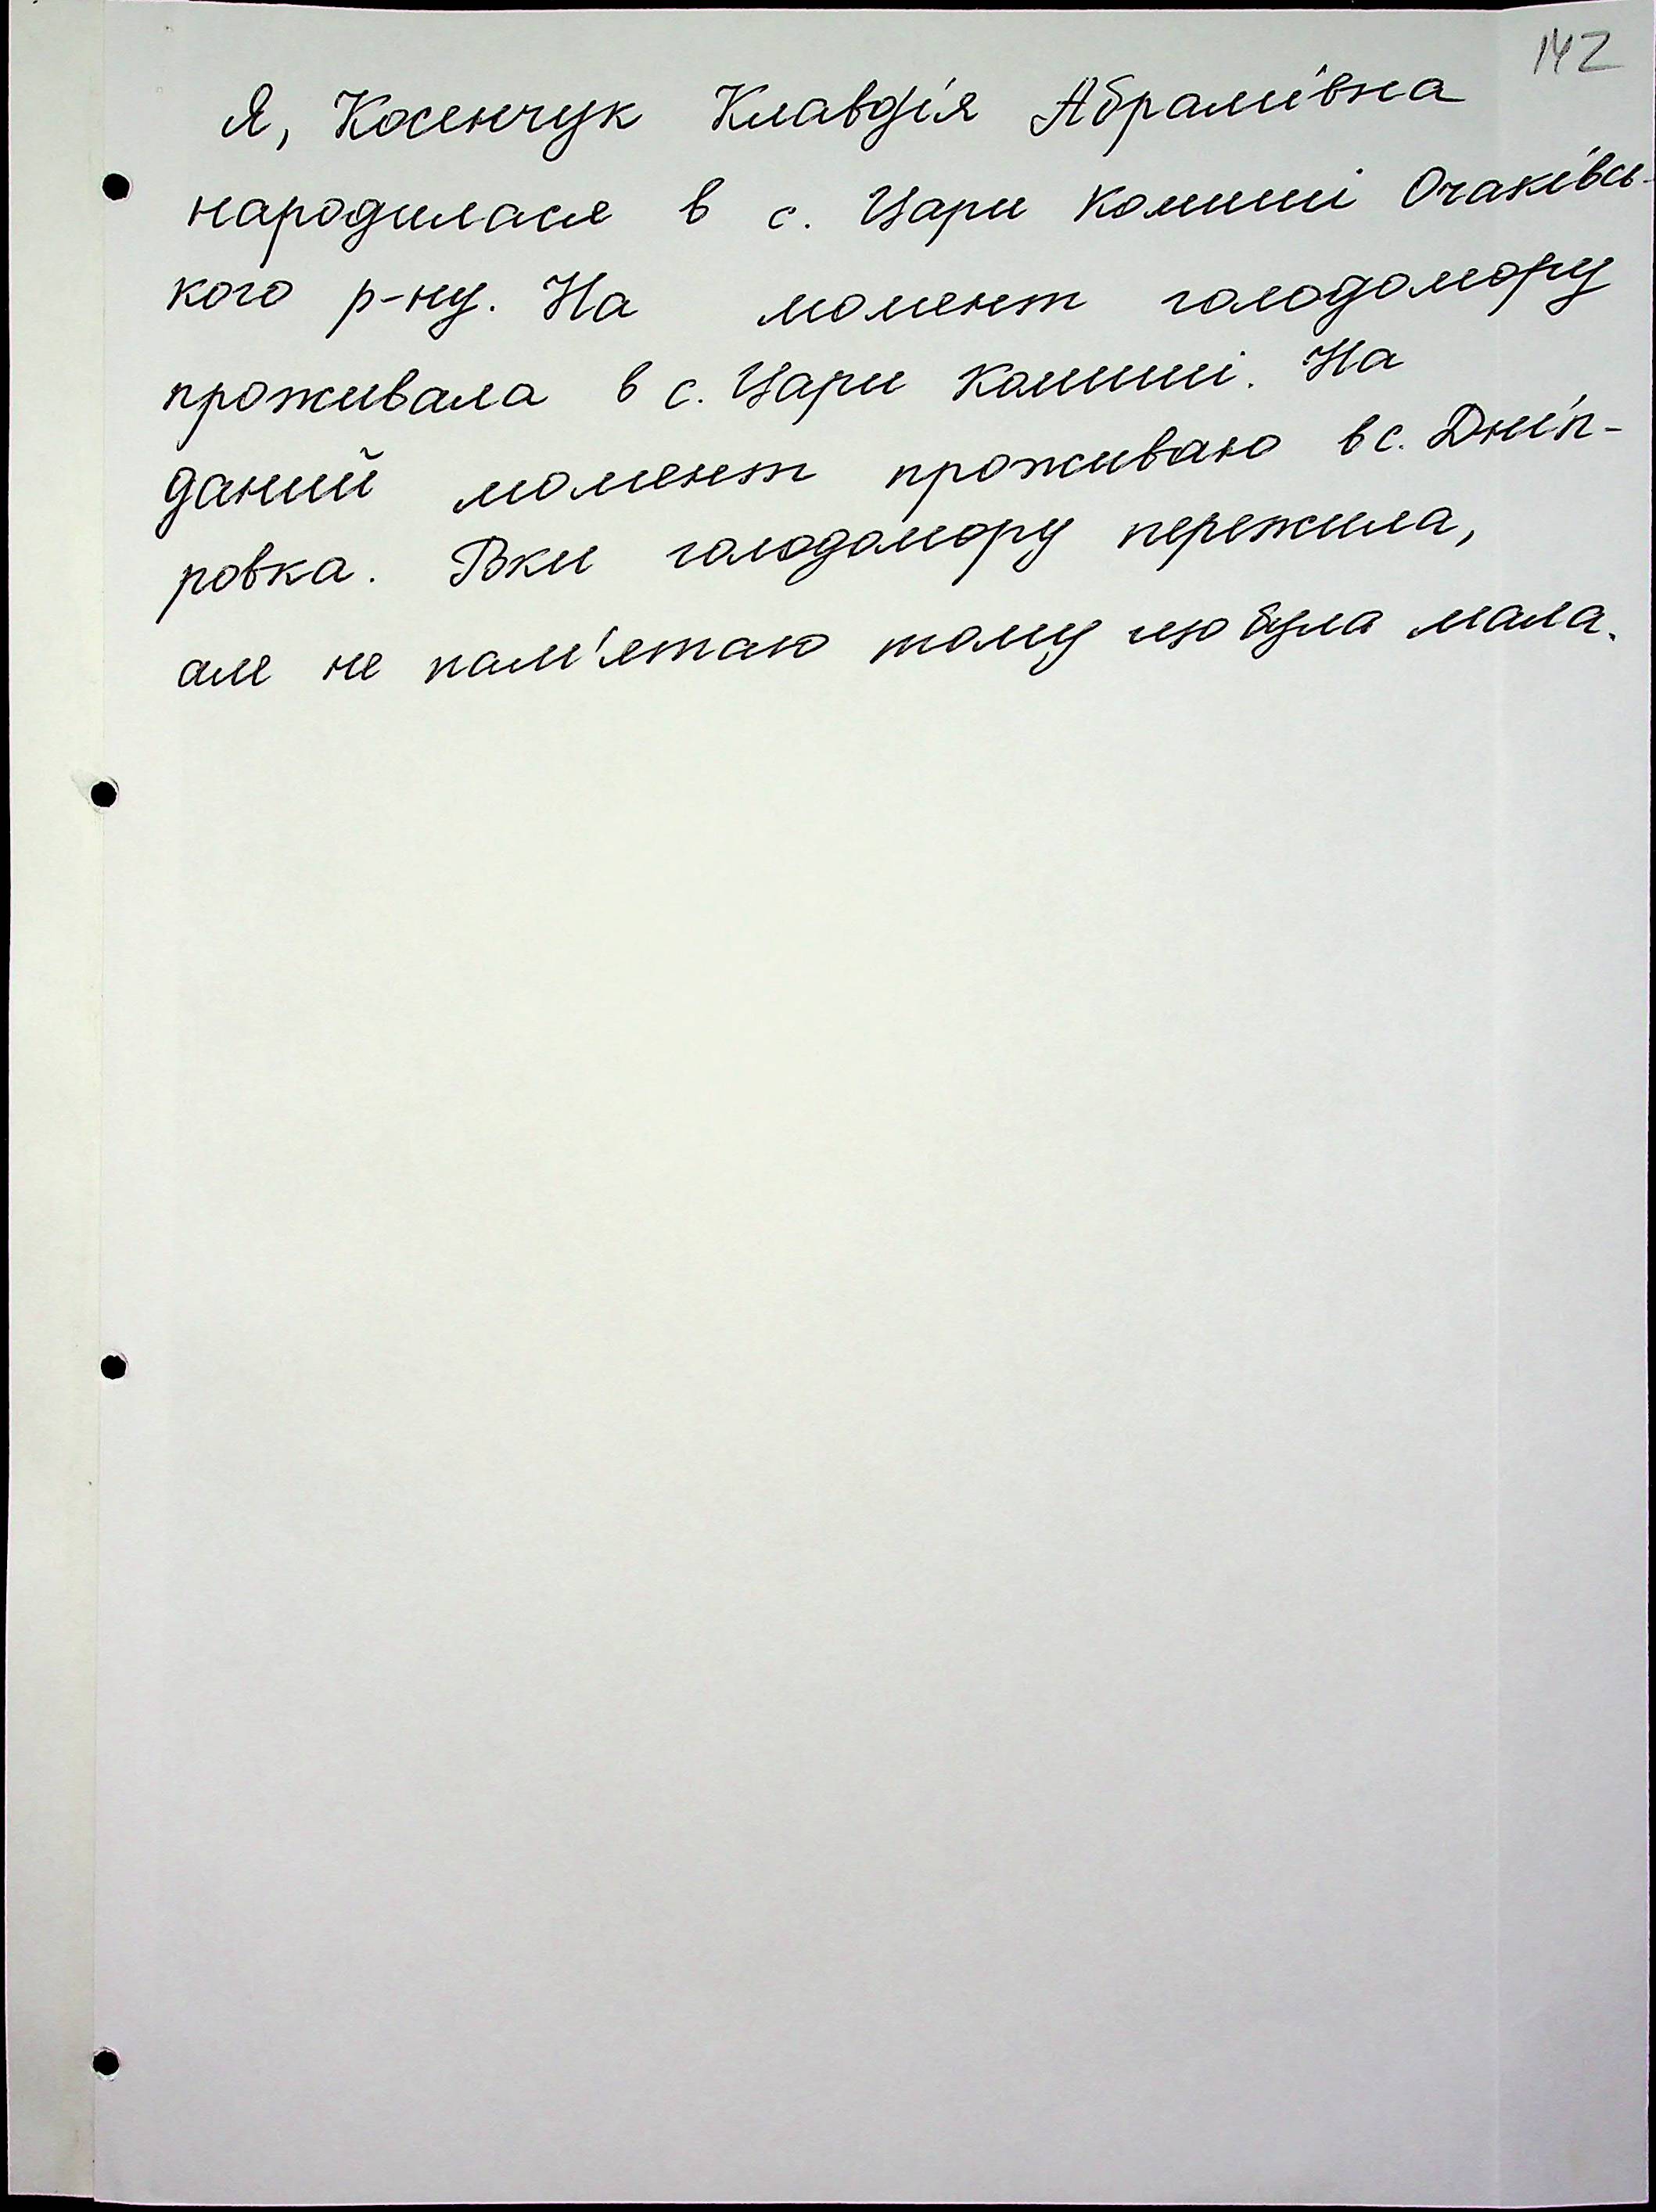 142
Я, Косенчук Клавдія Абрамівна
народилася в с. Цари Комиші Очаківсь-
кого р-ну. На момент голодомору
проживала в с. Цари Комиші. На
даний момент проживаю в с. Дніп-
ровка. Роки голодомору пережила,
але не пам'ятаю тому що була мала.